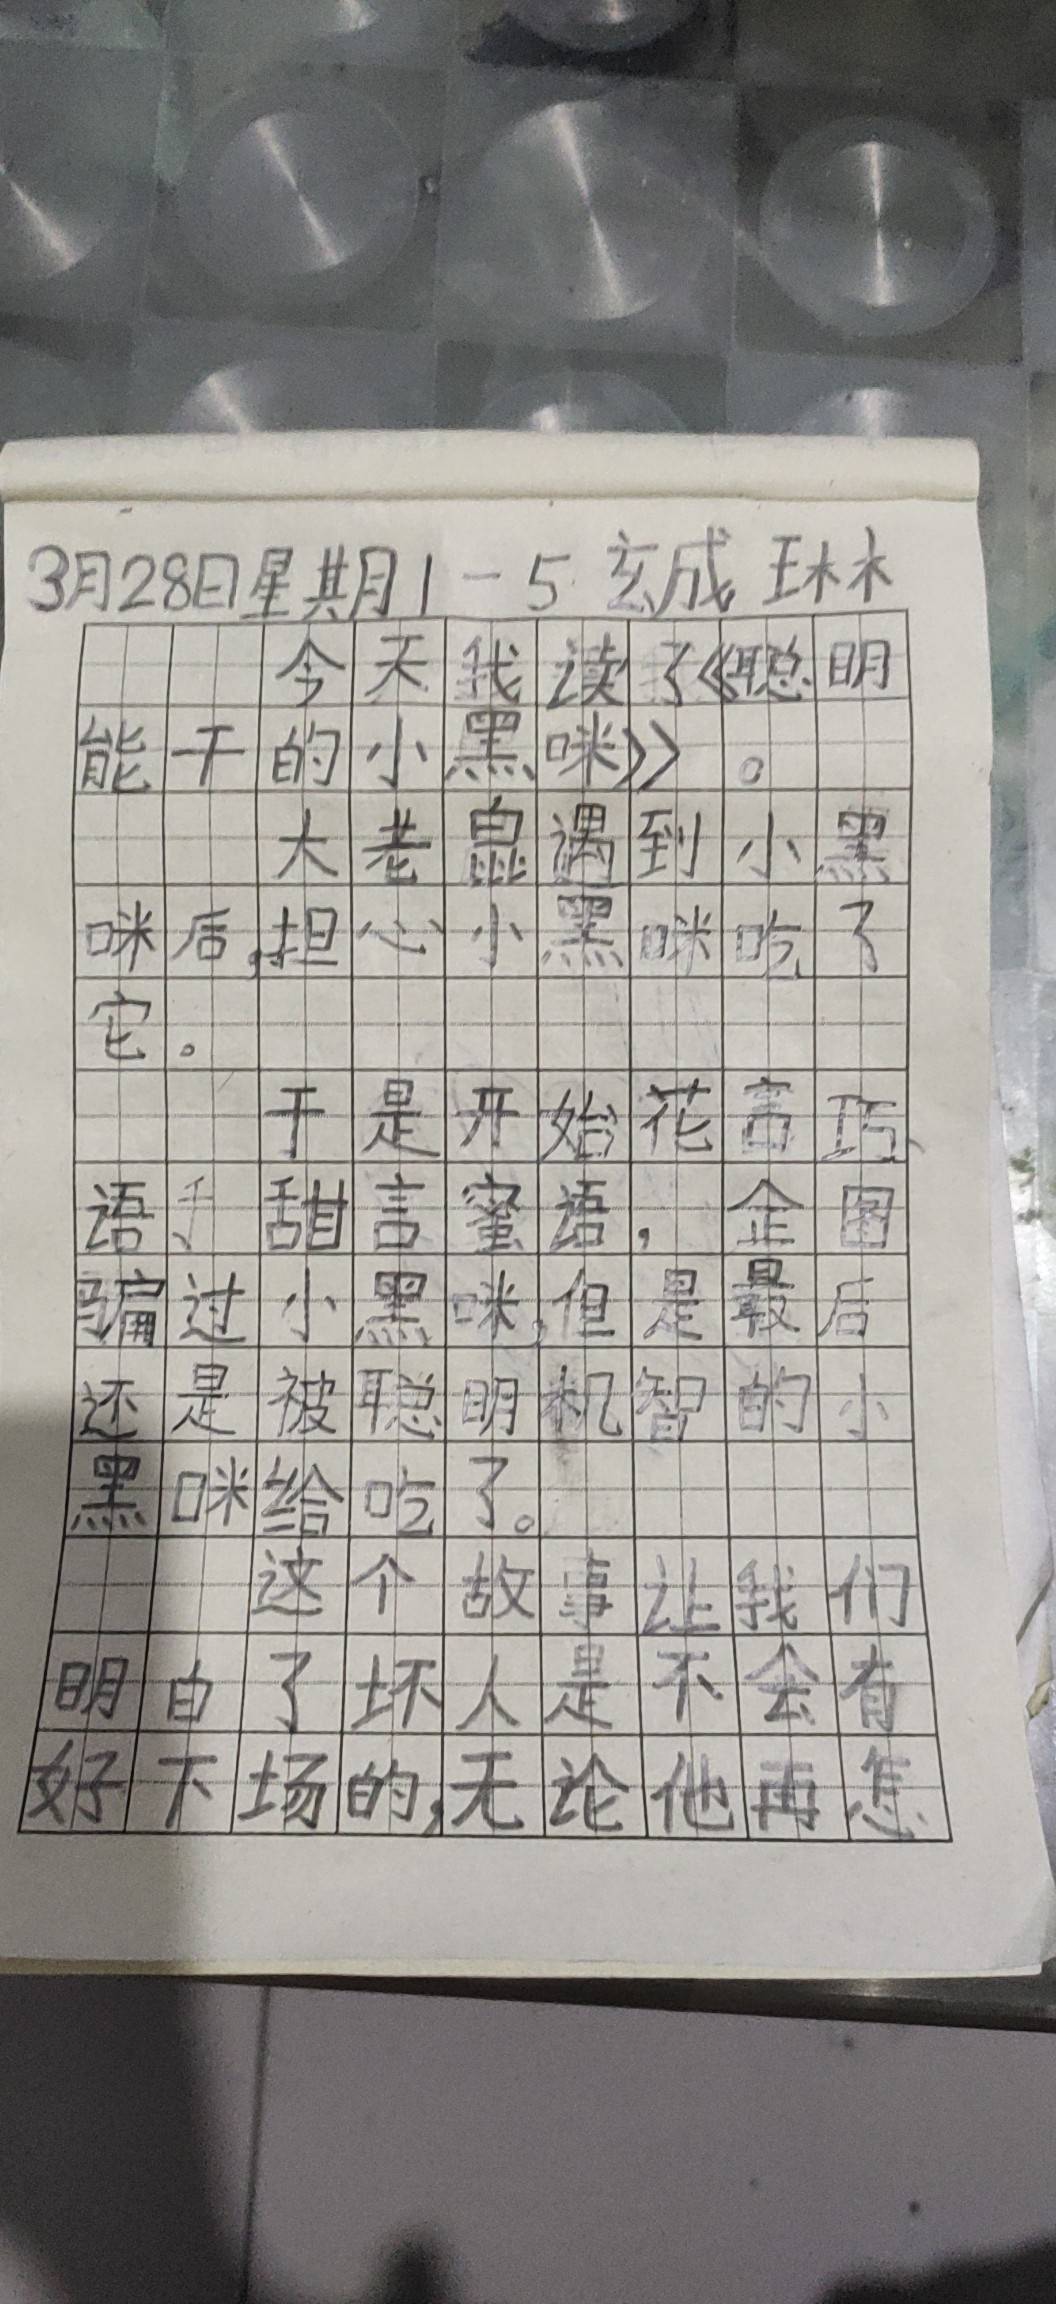 3月28日星期1-5 玄成琳
今天我读了《聪明
能干的小黑咪》。
大老鼠遇到小黑
咪后,担心小黑咪吃了
它。
于是开始花言巧
语、甜言蜜语,企图
骗过小黑咪,但是最后
还是被聪明机智的小
黑咪给吃了。
这个故事让我们
明白了坏人是不会有
好下场的,无论他再怎